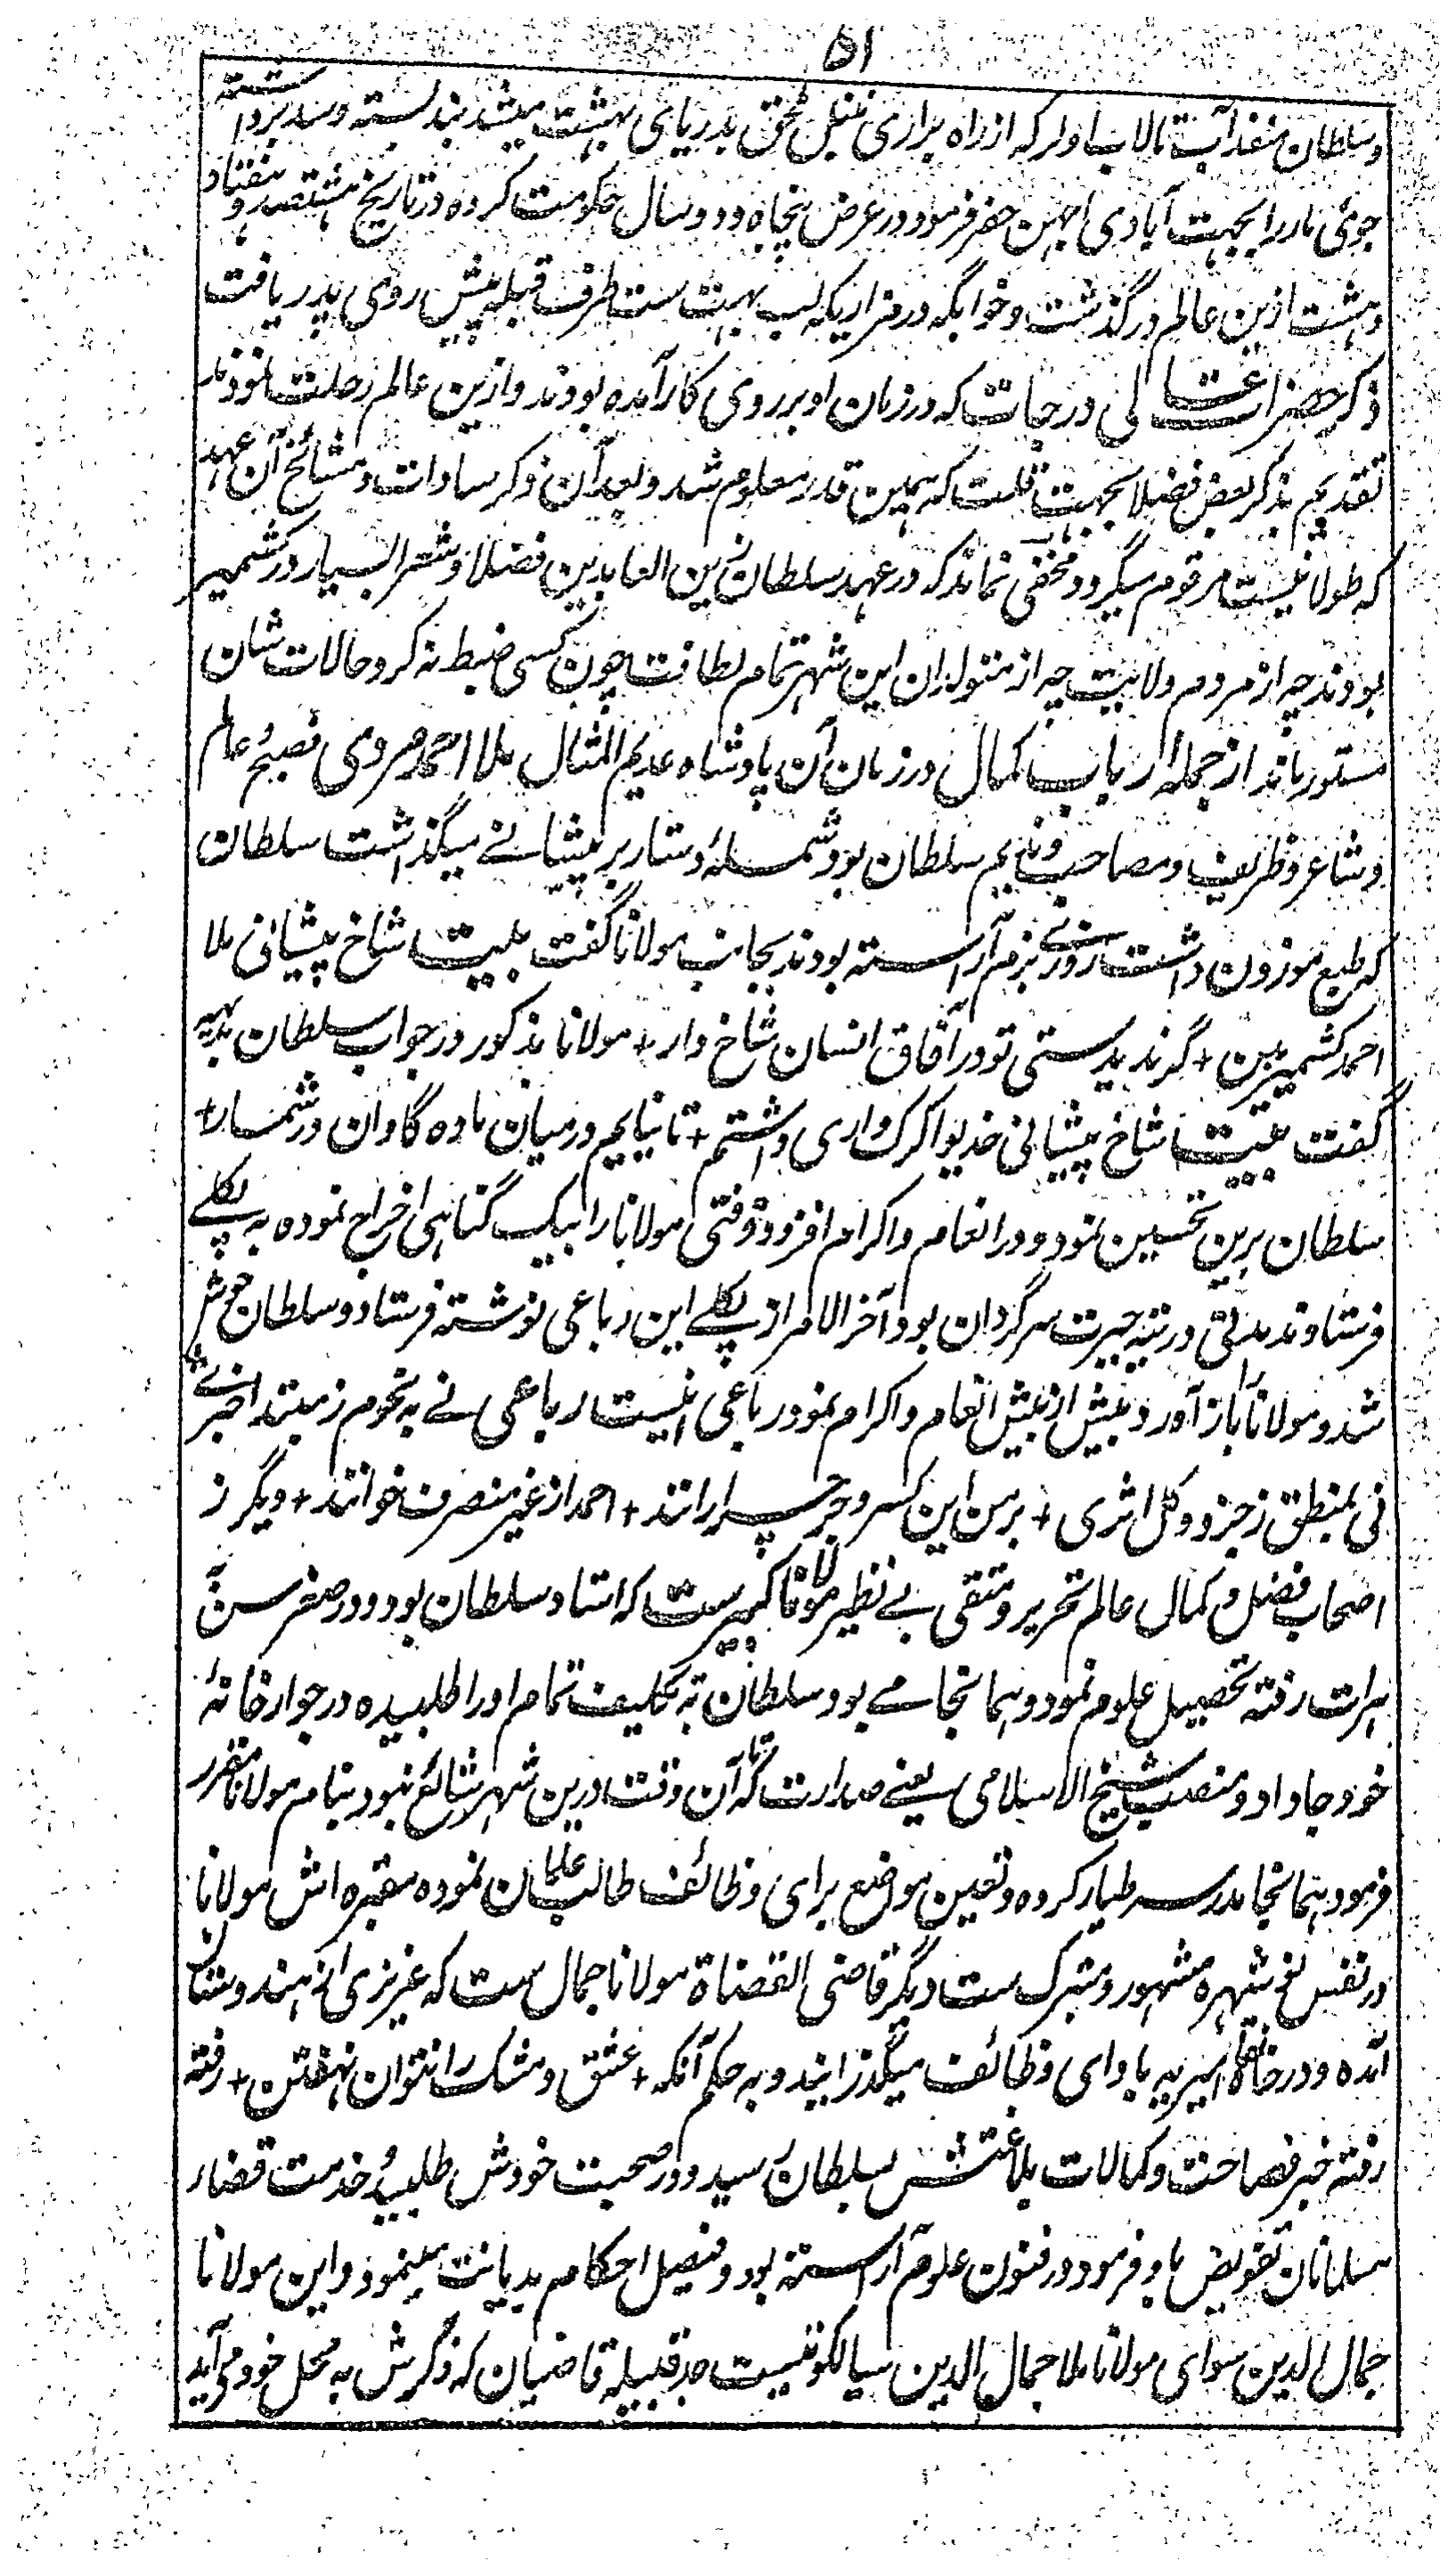 ۵۱
وسلطان منفذ آب تالاب اولر که از راه براری ننبل ملحق بدریای بهت میشد بند بسته وسد برداشته
جوئی مار را بجهت آبادی اجهن حفر فرمود و در عرض پنجاه و دو سال حکومت کرده در تاریخ هشتصد و هفتاد
و هشت ازین عالم درگذشت و خوابگه در مزاریکه لب بهت ست طرف قبله پیش روی پدر یافت
ذکر حضرات عالی درجات که در زمان او بر روی کار آمده بودند و ازین عالم رحلت نمودند
تقدیم بذکر بعض فضلا بجهت قلت که همین قدر معلوم شد و بعد آن ذکر سادات و مشائخ آن عهد
که طولانیست مرقوم میگردد مخفی نماند که در عهد سلطان زین العابدین فضلا و شعرا بسیار در کشمیر
بودند چه از مردم ولایت چه از متولدان این شهر تمام لطافت چون کسی ضبط نه کرد حالات شان
مستور ماند از جمله ارباب کمال در زمان آن پادشاه عدیم المثال ملا احمد مروی فصیح عالم
و شاعر و ظریف و مصاحب و ندیم سلطان بود شمله دستار بر پیشانے میگذاشت سلطان
که طبع موزون داشت روزے بزم آراسته بودند بجانب مولانا گفت بیت شاخ پیشانی ملا
احمد کشمیر بین + گر ندیدستی تو در آفاق انسان شاخ دار + مولانا مذکور در جواب سلطان بدیهه
گفت بیت شاخ پیشانی خدیوا کرک واری داشتم + تا نیایم در میان ماده گاوان در شمار +
سلطان برین تحسین نمود و در انعام و اکرام افزود وقتی مولانا را بیک گناهی اخراج نموده به پکلے
فرستادند مدتی در تیه حیرت سرگردان بود آخر الامر از پکلے این رباعی نوشته فرستاد و سلطان خوش
شد و مولانا را باز آورد و بیش از بیش انعام و اکرام نمود رباعی اینست رباعی نے به نحوم ز مبتدا خبرے
نی بمنطق ز جزو و کل اثری + بر من این کسر و جر چرا رانند + احمد از غیر منصرف خوانند + دیگر ز
اصحاب فضل و کمال عالم تحریر و متقی بے نظیر مولانا کبیرست که استاد سلطان بود و در صغر سن
هرات رفته تحصیل علوم نمود و همانجا مے بود سلطان به تکلیف تمام او را طلبیده در جوار خانهٔ
خود جا داد و منصب شیخ الاسلامی یعنے صدارت که تا آن وقت درین شهر شائع نبود بنام مولانا مقرر
فرمود همانجا مدرسه طیار کرده و تعین مواضع برای وظائف طالب علمان نموده مقبره اش مولانا
در نفس نوشهره مشهور و متبرک ست دیگر قاضی القضاة مولانا جمال ست که عزیزی از هندوستان
آمده و در خانقاه امیریه باوای وظائف میگذرانید و به حکم آنکه + عشق و مشک را نتوان نهفتن + رفته
رفته خبر فصاحت و کمالات بلاغتش بسلطان رسید و در صحبت خودش طلبید خدمت قضا
مسلمانان تفویض باو فرمود در فنون علوم آراسته بود و فیصل احکام بدیانت مینمود و این مولانا
جمال الدین سوای مولانا ملا جمال الدین سیالکوتیست جد قبیله قاضیان که ذکرش به محل خود می آید